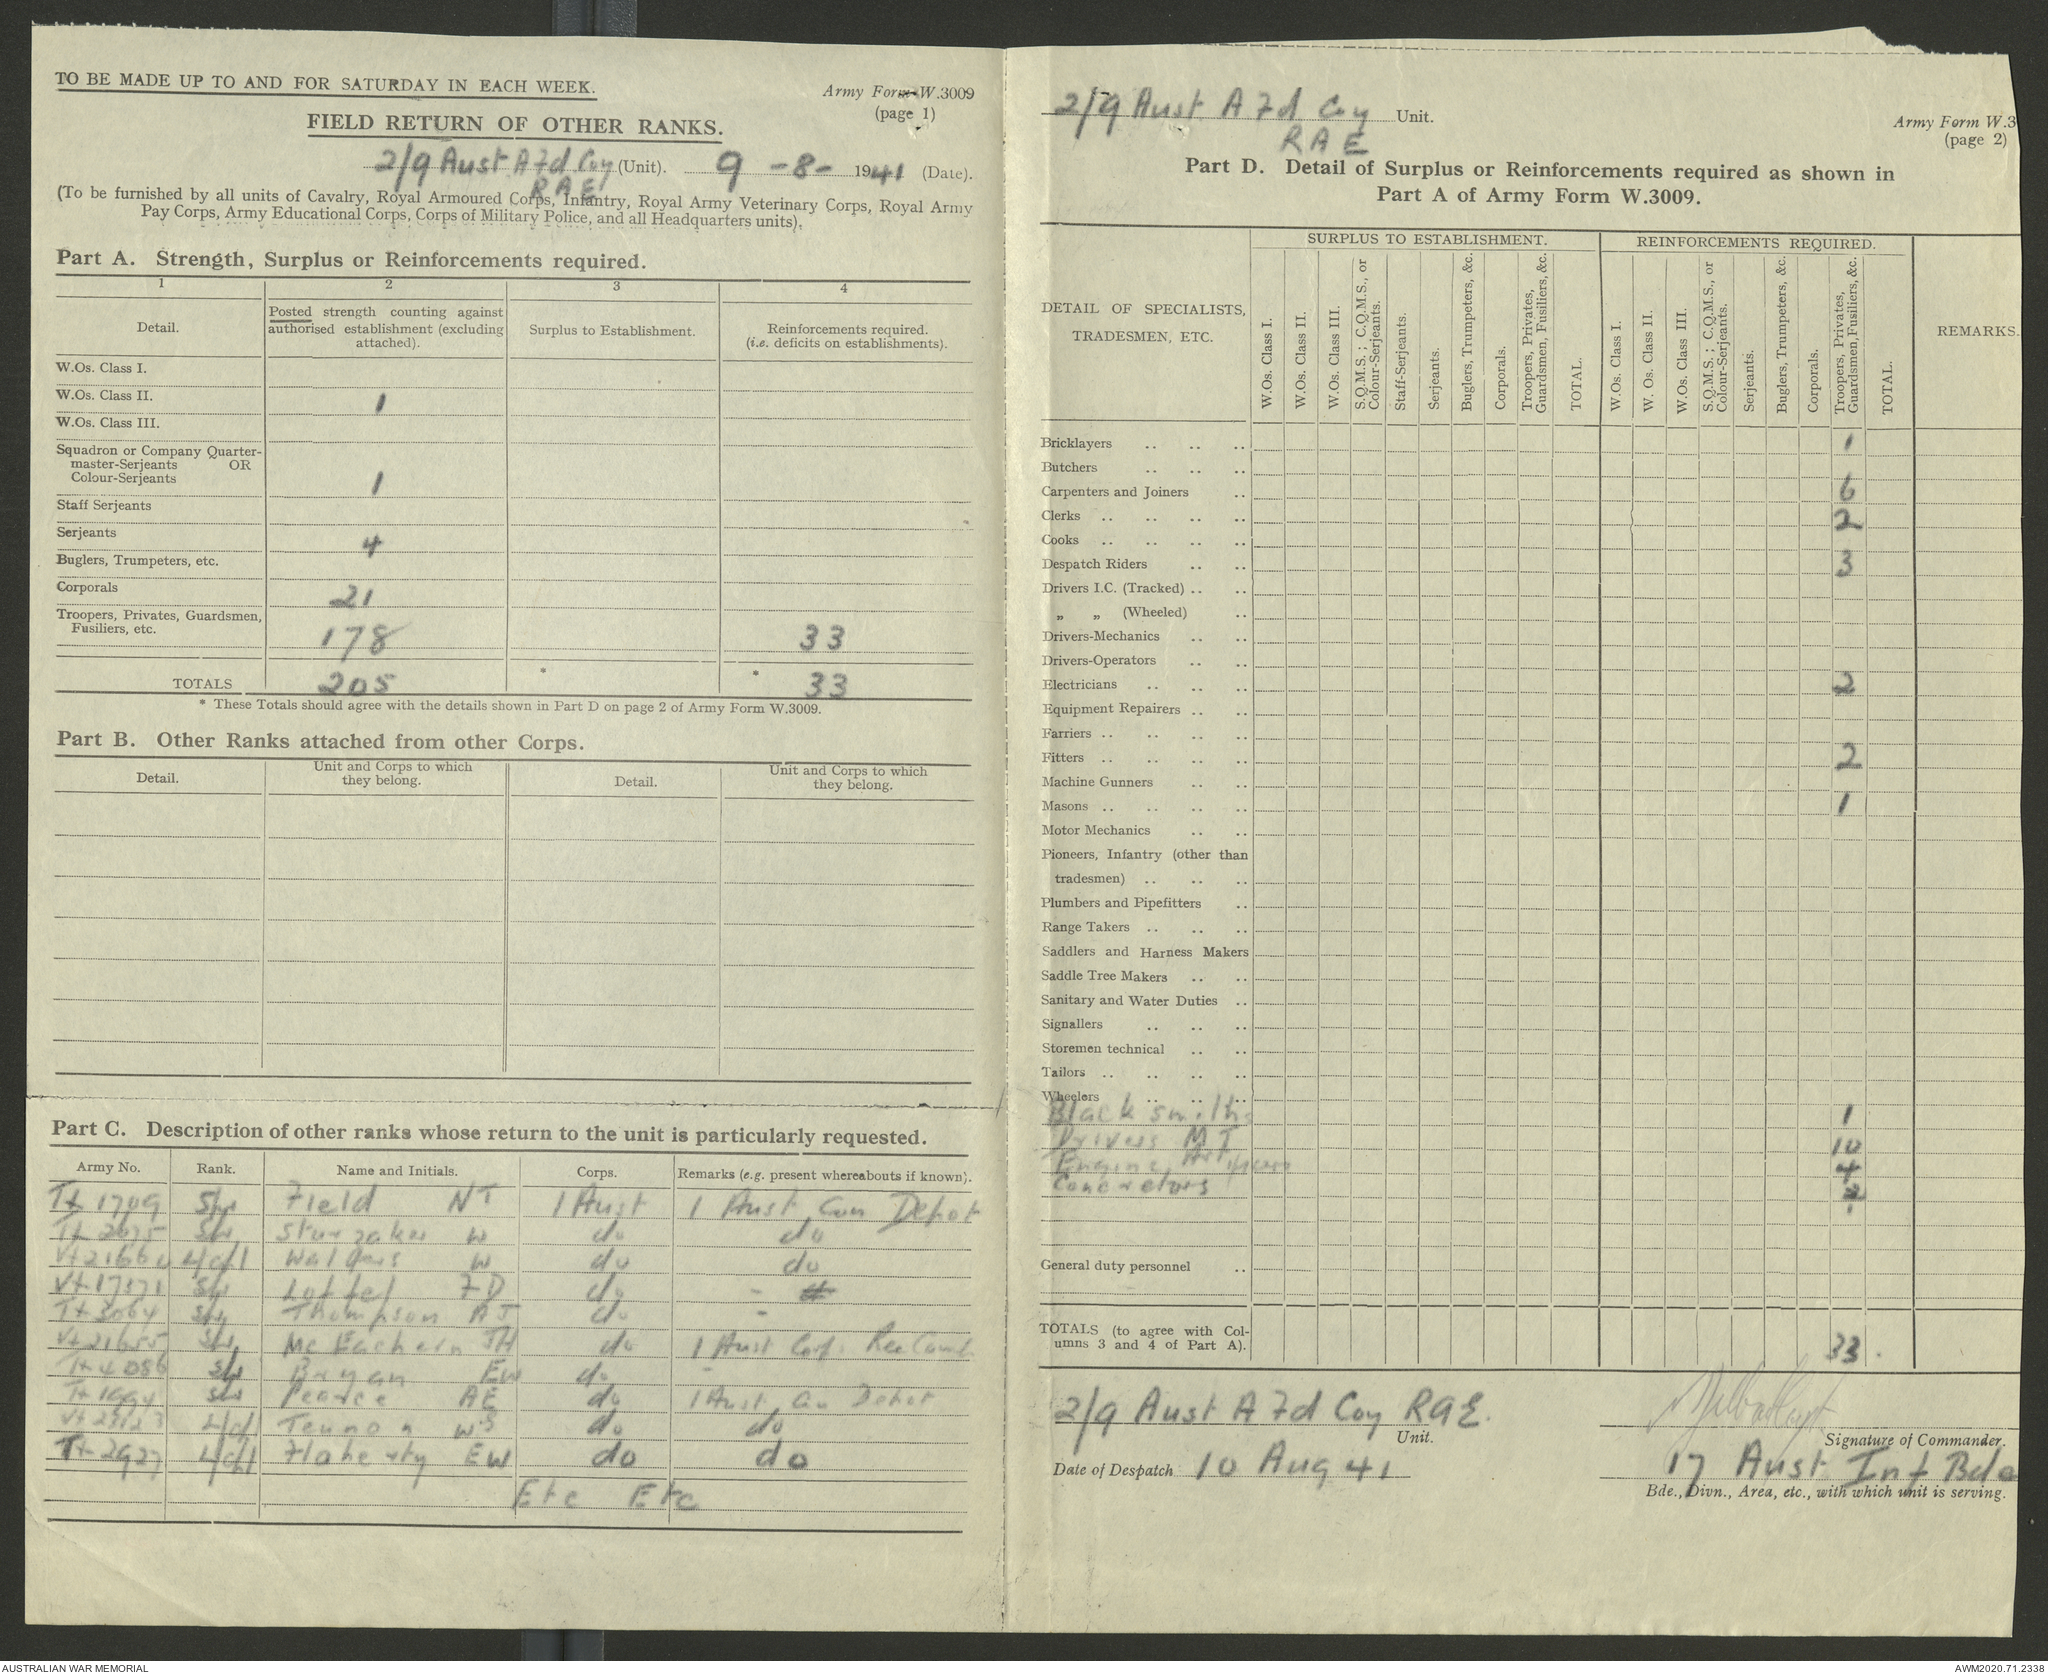 TO BE MADE UP TO AND FOR SATURDAY IN EACH WEEK.
Army Form W.3009
(page 1)
FIELD RETURN OF OTHER RANKS.
2/9 Aust A Fd Coy (Unit). 9 -8- 1941 (Date).
RAE
(To be furnished by all units of Cavalry, Royal Armoured Corps, Infantry, Royal Army Veterinary Corps, Royal Army
Pay Corps, Army Educational Corps, Corps of Military Police, and all Headquarters units).
Part A. Strength, Surplus or Reinforcements required.
1 2 3 4
Detail. Posted strength counting against authorised establishment (excluding attached). Surplus to Establishment. Reinforcements required. (i.e. deficits on establishments).
W.Os. Class I.
W.Os. Class II. 1
W.Os. Class III.
Squadron or Company Quarter-
master-Serjeants OR
Colour-Serjeants 1
Staff Serjeants
Serjeants 4
Buglers, Trumpeters, etc.
Corporals 21
Troopers, Privates, Guardsmen,
Fusiliers, etc. 178 33
TOTALS 205 * * 33
* These Totals should agree with the details shown in Part D on page 2 of Army Form W.3009.
Part B. Other Ranks attached from other Corps.
Detail. Unit and Corps to which they belong. Detail. Unit and Corps to which they belong.
Part C. Description of other ranks whose return to the unit is particularly requested.
Army No. Rank. Name and Initials. Corps. Remarks (e.g. present whereabouts if known).
Tx 1709 Spr Field NT 1 Aust 1 Aust Con Depot
Spr Sturzaker W do do
L/cpl W do do
Vx 17371 Spr FD do -
Spr Thompson AJ do -
Vx 21655 Spr McEachern JH do 1 Aust Corps Camp
Tx 4086 Spr Bryan EW do -
Spr Pearce AE do 1 Aust Con Depot
L/cpl Tennon WS do do
Tx 2927 L/cpl Flaherty EW do do
Etc Etc
2/9 Aust A Fd Coy Unit.
RAE
Army Form W.3
(page 2)
Part D. Detail of Surplus or Reinforcements required as shown in
Part A of Army Form W.3009.
SURPLUS TO ESTABLISHMENT. REINFORCEMENTS REQUIRED.
DETAIL OF SPECIALISTS, TRADESMEN, ETC.
W.Os. Class I.
W.Os. Class II.
W.Os. Class III.
S.Q.M.S.; C.Q.M.S., or Colour-Serjeants.
Staff-Serjeants.
Serjeants.
Buglers, Trumpeters, &c.
Corporals.
Troopers, Privates, Guardsmen, Fusiliers, &c.
TOTAL.
W.Os. Class I.
W. Os. Class II.
W.Os. Class III.
S.Q.M.S.; C.Q.M.S., or Colour-Serjeants.
Serjeants.
Buglers, Trumpeters, &c.
Corporals.
Troopers, Privates, Guardsmen, Fusiliers, &c.
TOTAL.
REMARKS.
Bricklayers 1
Butchers
Carpenters and Joiners 6
Clerks 2
Cooks
Despatch Riders 3
Drivers I.C. (Tracked)
„ „ (Wheeled)
Drivers-Mechanics
Drivers-Operators
Electricians 2
Equipment Repairers
Farriers
Fitters 2
Machine Gunners
Masons 1
Motor Mechanics
Pioneers, Infantry (other than
tradesmen)
Plumbers and Pipefitters
Range Takers
Saddlers and Harness Makers
Saddle Tree Makers
Sanitary and Water Duties
Signallers
Storemen technical
Tailors
Wheelers
Blacksmiths 1
Drivers M T 10
Engine 4
Concretors
General duty personnel
TOTALS (to agree with Col-
umns 3 and 4 of Part A). 33.
2/9 Aust A Fd Coy RAE.
Unit.
Signature of Commander.
Date of Despatch 10 Aug 41
17 Aust Inf Bde
Bde., Divn., Area, etc., with which unit is serving.
AUSTRALIAN WAR MEMORIAL
AWM2020.71.2338